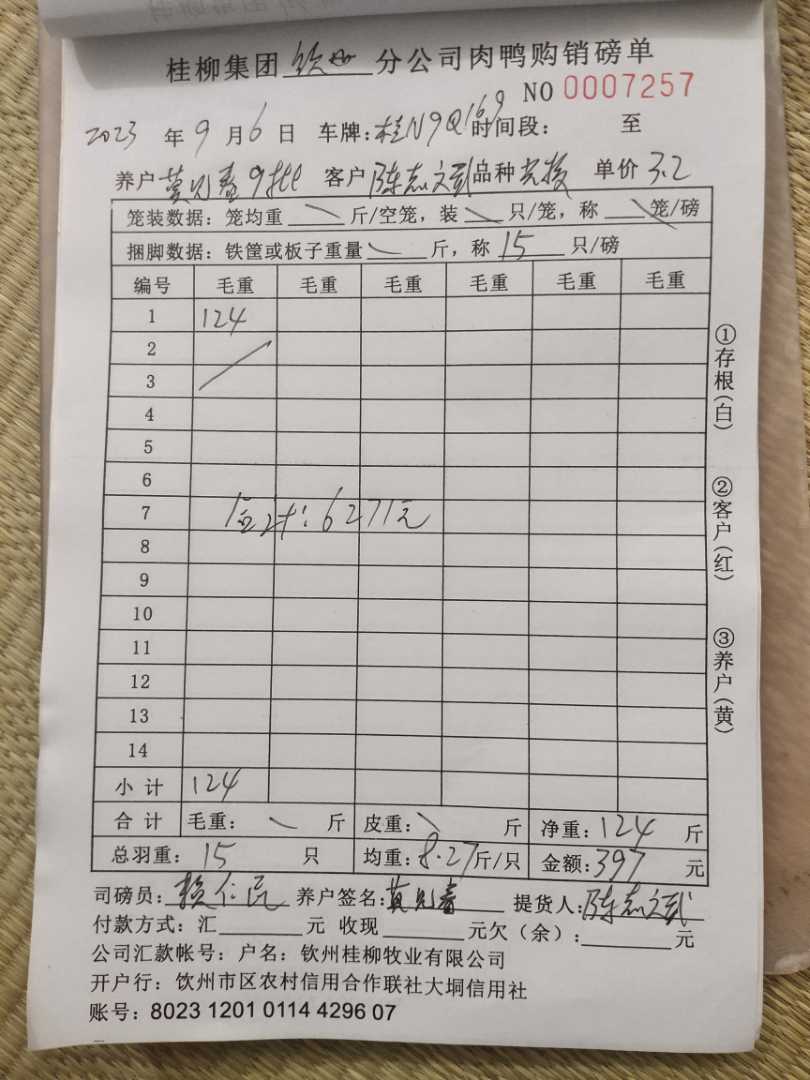 桂柳集团 钦州 分公司肉鸭购销磅单
NO 0007257
2023 年 9 月 6 日 车牌:桂N9Q169 时间段: 至
养户 9批 客户 陈志文武 品种 单价 3.2
笼装数据: 笼均重 斤/空笼, 装 只/笼, 称 笼/磅
捆脚数据: 铁筐或板子重量 斤, 称 15 只/磅
编号 毛重 毛重 毛重 毛重 毛重 毛重
1 124
2
3
4
5
6
7 6271元
8
9
10
11
12
13
14
小 计 124
合 计 毛重: 斤 皮重: 斤 净重: 124 斤
总羽重: 15 只 均重: 8.27 斤/只 金额: 397 元
司磅员: 养户签名: 提货人:
付款方式: 汇 元 收现 元欠(余): 元
公司汇款帐号: 户名: 钦州桂柳牧业有限公司
开户行: 饮州市区农村信用合作联社大垌信用社
账号: 8023 1201 0114 4296 07
①存根(白)
②客户(红)
③养户(黄)